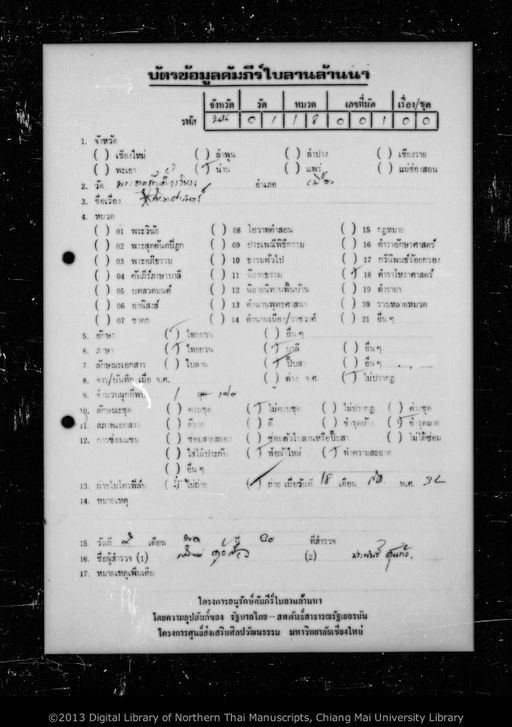 บัตรข้อมูลคัมภีร์ใบลานล้านนา
จังหวัด วัด หมวด เลขที่มัด เรื่อง/ชุด
รหัส 0 1 1 8 0 0 1 0 0
1. จังหวัด
( ) เชียงใหม่ ( ) ลำพูน ( ) ลำปาง ( ) เชียงราย
( ) พะเยา ( ) น่าน ( ) แพร่ ( ) แม่ฮ่องสอน
2. วัด อำเภอ เมือง
3. ชื่อเรื่อง
4. หมวด
( ) 01 พระวินัย ( ) 08 โอวาทคำสอน ( ) 15 กฎหมาย
( ) 02 พระสุตตันตปิฎก ( ) 09 ประเพณีพิธีกรรม ( ) 16 ตำราอักษรศาสตร์
( ) 03 พระอภิธรรม ( ) 10 ธรรมทั่วไป ( ) 17 กวีนิพนธ์ร้อยกรอง
( ) 04 คัมภีร์ภาษาบาลี ( ) 11 นิยายธรรม (/) 18 ตำราโหราศาสตร์
( ) 05 บทสวดมนต์ ( ) 12 นิยายนิทานพื้นบ้าน ( ) 19 ตำรายา
( ) 06 อานิสงส์ ( ) 13 ตำนานพุทธศาสนา ( ) 20 รวมหลายหมวด
( ) 07 ชาดก ( ) 14 ตำนานเมือง/ราชวงศ์ ( ) 21 อื่น ๆ
5. อักษร (/) ไทยยวน ( ) อื่น ๆ
6. ภาษา (/) ไทยยวน (/) บาลี ( ) อื่น ๆ
7. ลักษณะเอกสาร ( ) ใบลาน (/) พับสา ( ) อื่น ๆ
8. จาร/บันทึก เมื่อ จ.ศ. ( ) ต่าง จ.ศ. (/) ไม่ปรากฏ
9. จำนวนผูกที่พบ 1
10. ลักษณะชุด ( ) ครบชุด (/) ไม่ครบชุด ( ) ไม่ปรากฏ ( ) ต่างชุด
11. สภาพเอกสาร ( ) ดีมาก ( ) ดี ( ) ชำรุดบ้าง ( ) ชำรุดมาก
12. การซ่อมแซม ( ) ซ่อมสายสยอง ( ) ซ่อมตัวใบลานหรือพับสา ( ) ไม่ได้ซ่อม
( ) ใส่ไม้ประกับ (/) ห่อผ้าใหม่ (/) ทำความสะอาด
( ) อื่น ๆ
13. ถ่ายไมโครฟิล์ม ( ) ไม่ถ่าย (/) ถ่าย เมื่อวันที่ 18 เดือน พ.ศ. 32
14. หมายเหตุ
15. วันที่ เดือน ปี ที่สำรวจ
16. ชื่อผู้สำรวจ (1) (2)
17. หมายเหตุเพิ่มเติม
โครงการอนุรักษ์คัมภีร์ใบลานล้านนา
โดยความอุปถัมภ์ของ รัฐบาลไทย - สหพันธ์สาธารณรัฐเยอรมัน
โครงการศูนย์ส่งเสริมศิลปวัฒนธรรม มหาวิทยาลัยเชียงใหม่
©2013 Digital Library of Northern Thai Manuscripts, Chiang Mai University Library